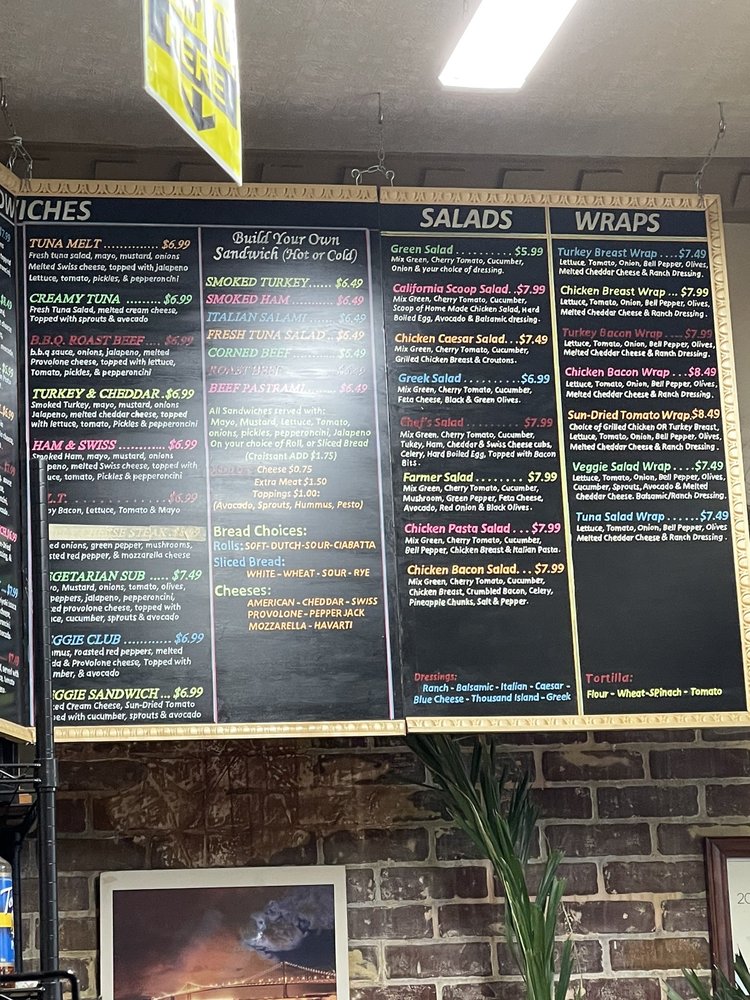 HERE!
WICHES
TUNA MELT .............. $6.99
Fresh tuna salad, mayo, mustard, onions
Melted Swiss cheese, topped with jalapeno
Lettuce, tomato, pickles, & pepperoncini
CREAMY TUNA ......... $6.99
Fresh Tuna Salad, melted cream cheese,
Topped with sprouts & avocado
B.B.Q. ROAST BEEF .... $6.99
b.b.q sauce, onions, jalapeno, melted
Provolone cheese, topped with lettuce,
Tomato, pickles, & pepperoncini
TURKEY & CHEDDAR .$6.99
Smoked Turkey, mayo, mustard, onions
Jalapeno, melted cheddar cheese, topped
with lettuce, tomato, Pickles & pepperoncini
HAM & SWISS ............. $6.99
Smoked Ham, mayo, mustard, onions
peno, melted Swiss cheese, topped with
tuce, tomato, Pickles & pepperoncini
L.T. ....................... $6.99
y Bacon, Lettuce, Tomato & Mayo
ESE STEAK
ed onions, green pepper, mushrooms,
sted red pepper, & mozzarella cheese
GETARIAN SUB ..... $7.49
yo, Mustard, onions, tomato, olives,
peppers, jalapeno, pepperoncini,
ed provolone cheese, topped with
uce, cucumber, sprouts & avocado
GGIE CLUB ............ $6.99
mus, roasted red peppers, melted
da & Provolone cheese, Topped with
mber, & avocado
GGIE SANDWICH ... $6.99
ed Cream Cheese, Sun-Dried Tomato
ed with cucumber, sprouts & avocado
Build Your Own
Sandwich (Hot or Cold)
SMOKED TURKEY...... $6.49
SMOKED HAM ............ $6.49
ITALIAN SALAMI ....... $6.49
FRESH TUNA SALAD .. $6.49
CORNED BEEF ............ $6.49
ROAST BEEF ............... $6.49
BEEF PASTRAMI......... $6.49
All Sandwiches served with:
Mayo, Mustard, Lettuce, Tomato,
onions, pickles, pepperoncini, Jalapeno
On your choice of Roll, or Sliced Bread
(Croissant ADD $1.75)
Cheese $0.75
Extra Meat $1.50
Toppings $1.00:
(Avocado, Sprouts, Hummus, Pesto)
Bread Choices:
Rolls: SOFT-DUTCH-SOUR-CIABATTA
Sliced Bread:
WHITE - WHEAT - SOUR - RYE
Cheeses:
AMERICAN - CHEDDAR - SWISS
PROVOLONE - PEPPER JACK
MOZZARELLA - HAVARTI
SALADS
Green Salad .......... $5.99
Mix Green, Cherry Tomato, Cucumber,
Onion & your choice of dressing.
California Scoop Salad..$7.99
Mix Green, Cherry Tomato, Cucumber,
Scoop of Home Made Chicken Salad, Hard
Boiled Egg, Avocado & Balsamic dressing.
Chicken Caesar Salad...$7.49
Mix Green, Cherry Tomato, Cucumber,
Grilled Chicken Breast & Croutons.
Greek Salad .......... $6.99
Mix Green, Cherry Tomato, Cucumber,
Feta Cheese, Black & Green Olives.
Chef's Salad .......... $7.99
Mix Green, Cherry Tomato, Cucumber,
Tukey, Ham, Chedder & Swiss Cheese cubs,
Celery, Hard Boiled Egg, Topped with Bacon
Bits .
Farmer Salad ......... $7.99
Mix Green, Cherry Tomato, Cucumber,
Mushroom, Green Pepper, Feta Cheese,
Avocado, Red Onion & Black Olives.
Chicken Pasta Salad .... $7.99
Mix Green, Cherry Tomato, Cucumber,
Bell Pepper, Chicken Breast & Italian Pasta.
Chicken Bacon Salad... $7.99
Mix Green, Cherry Tomato, Cucumber,
Chicken Breast, Crumbled Bacon, Celery,
Pineapple Chunks, Salt & Pepper.
Dressings:
Ranch - Balsamic - Italian - Caesar -
Blue Cheese - Thousand Island - Greek
WRAPS
Turkey Breast Wrap .... $7.49
Lettuce, Tomato, Onion, Bell Pepper, Olives,
Melted Cheddar Cheese & Ranch Dressing .
Chicken Breast Wrap ... $7.99
Lettuce, Tomato, Onion, Bell Pepper, Olives,
Melted Cheddar Cheese & Ranch Dressing.
Turkey Bacon Wrap .... $7.99
Lettuce, Tomato, Onion, Bell Pepper, Olives,
Melted Cheddar Cheese & Ranch Dressing.
Chicken Bacon Wrap ... $8.49
Lettuce, Tomato, Onion, Bell Pepper, Olives,
Melted Cheddar Cheese & Ranch Dressing.
Sun-Dried Tomato Wrap.$8.49
Choice of Grilled Chicken OR Turkey Breast,
Lettuce, Tomato, Onion, Bell Pepper, Olives,
Melted Cheddar Cheese & Ranch Dressing .
Veggie Salad Wrap .... $7.49
Lettuce, Tomato, Onion, Bell Pepper,
Cucumber, Sprouts, Avocado & Melted
Cheddar Cheese. Balsamic/Ranch Dressing.
Tuna Salad Wrap ...... $7.49
Lettuce, Tomato, Onion, Bell Pepper, Olives
Melted Cheddar Cheese & Ranch Dressing .
Tortilla:
Flour - Wheat-SPinach - Tomato
20